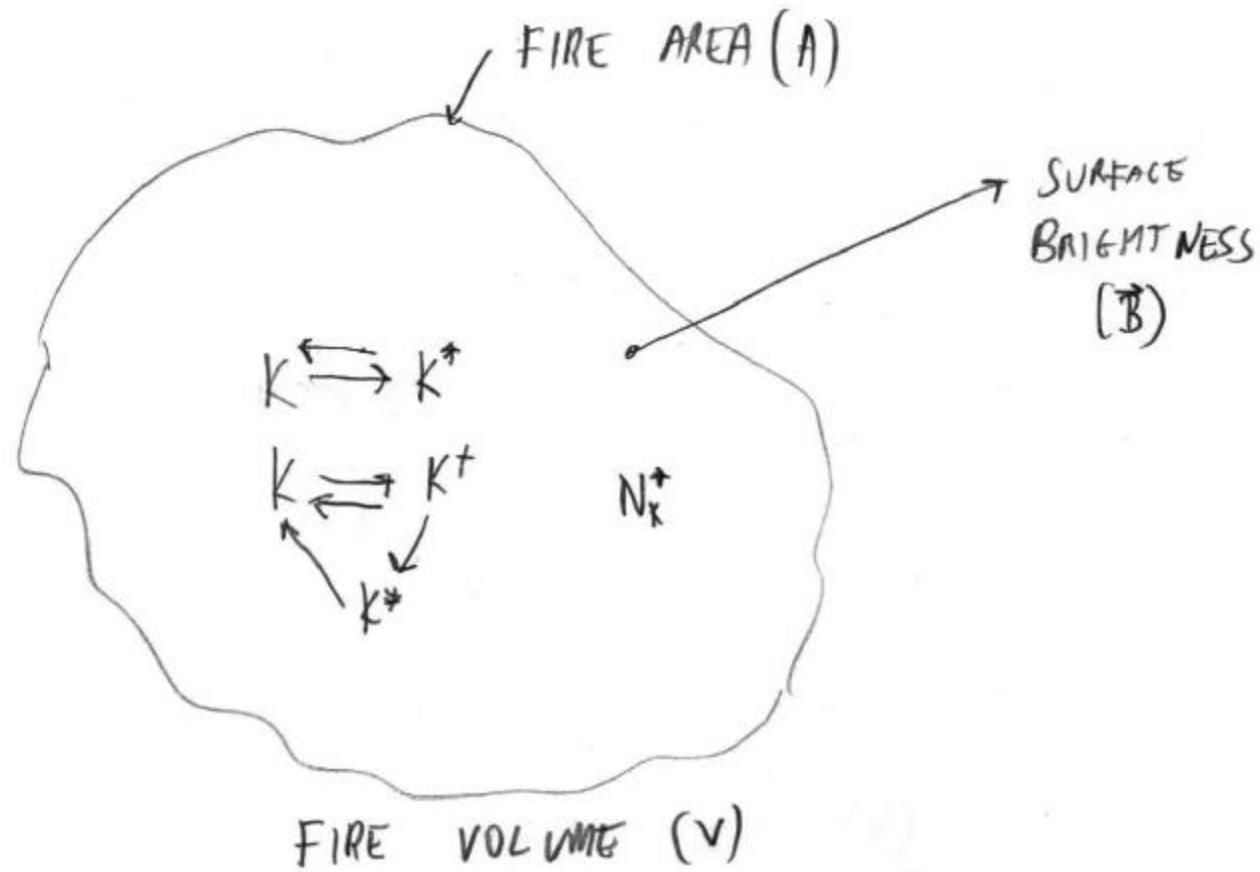 FIRE AREA (A)
SURFACE
BRIGHTNESS
(B⃗)
K ⇄ K*
K ⇄ K+
N_K^*
K*
FIRE VOLUME (V)